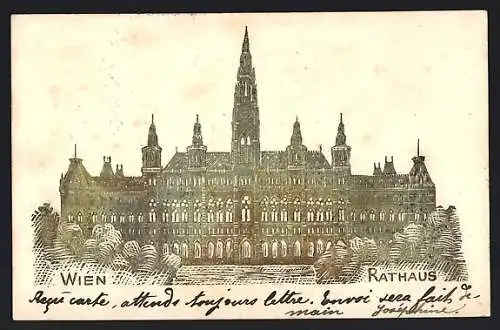 WIEN
RATHAUS
Reçu carte, attends toujours lettre. Envoi sera fait de
main Joséphine.